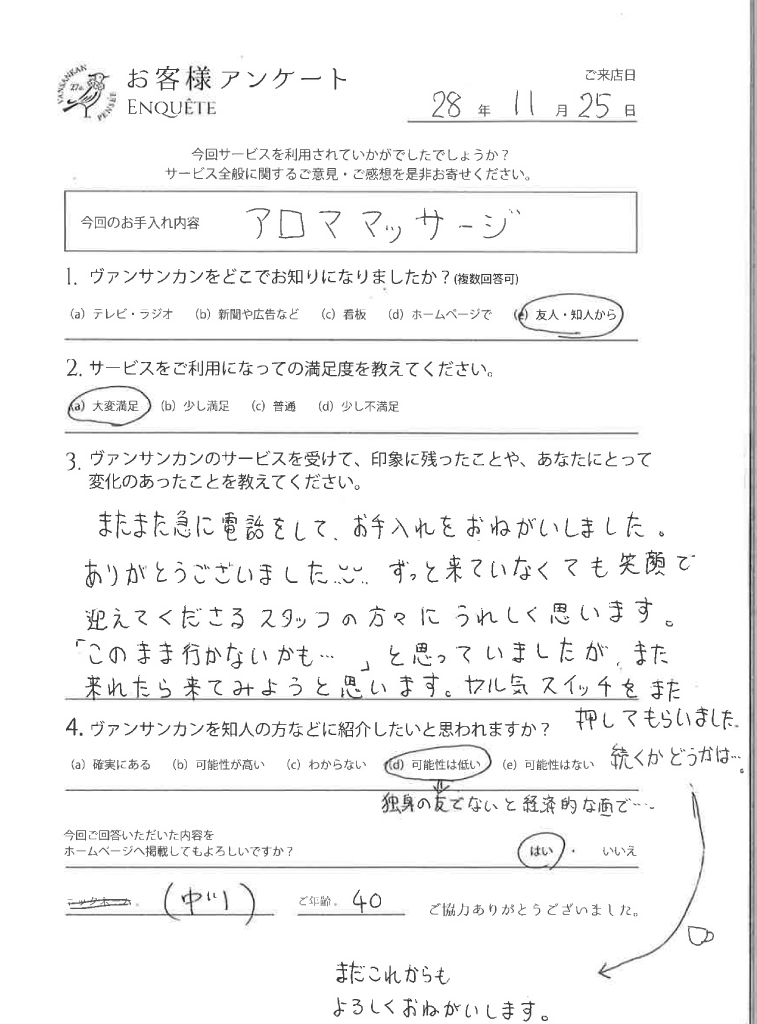 VANSANKAN 27e. PENSÉE
お客様アンケート
ENQUÊTE
ご来店日
28年 11月25日
今回サービスを利用されていかがでしたでしょうか？
サービス全般に関するご意見・ご感想を是非お寄せください。
今回のお手入れ内容 アロママッサージ
1. ヴァンサンカンをどこでお知りになりましたか？(複数回答可)
(a) テレビ・ラジオ (b) 新聞や広告など (c) 看板 (d) ホームページで (e) 友人・知人から
2. サービスをご利用になっての満足度を教えてください。
(a) 大変満足 (b) 少し満足 (c) 普通 (d) 少し不満足
3. ヴァンサンカンのサービスを受けて、印象に残ったことや、あなたにとって
変化のあったことを教えてください。
またまた急に電話をして、お手入れをおねがいしました。
ありがとうございました。 ずっと来ていなくても笑顔で
迎えてくださるスタッフの方々にうれしく思います。
「このまま行かないかも…」と思っていましたが、また
来れたら来てみようと思います。ヤル気スイッチをまた
押してもらいました。
続くかどうかは…。
4. ヴァンサンカンを知人の方などに紹介したいと思われますか？
(a) 確実にある (b) 可能性が高い (c) わからない (d) 可能性は低い (e) 可能性はない
独身の友でないと経済的な面で…
今回ご回答いただいた内容を
ホームページへ掲載してもよろしいですか？ はい ・ いいえ
(中川) ご年齢。 40 ご協力ありがとうございました。
まだこれからも
よろしくおねがいします。